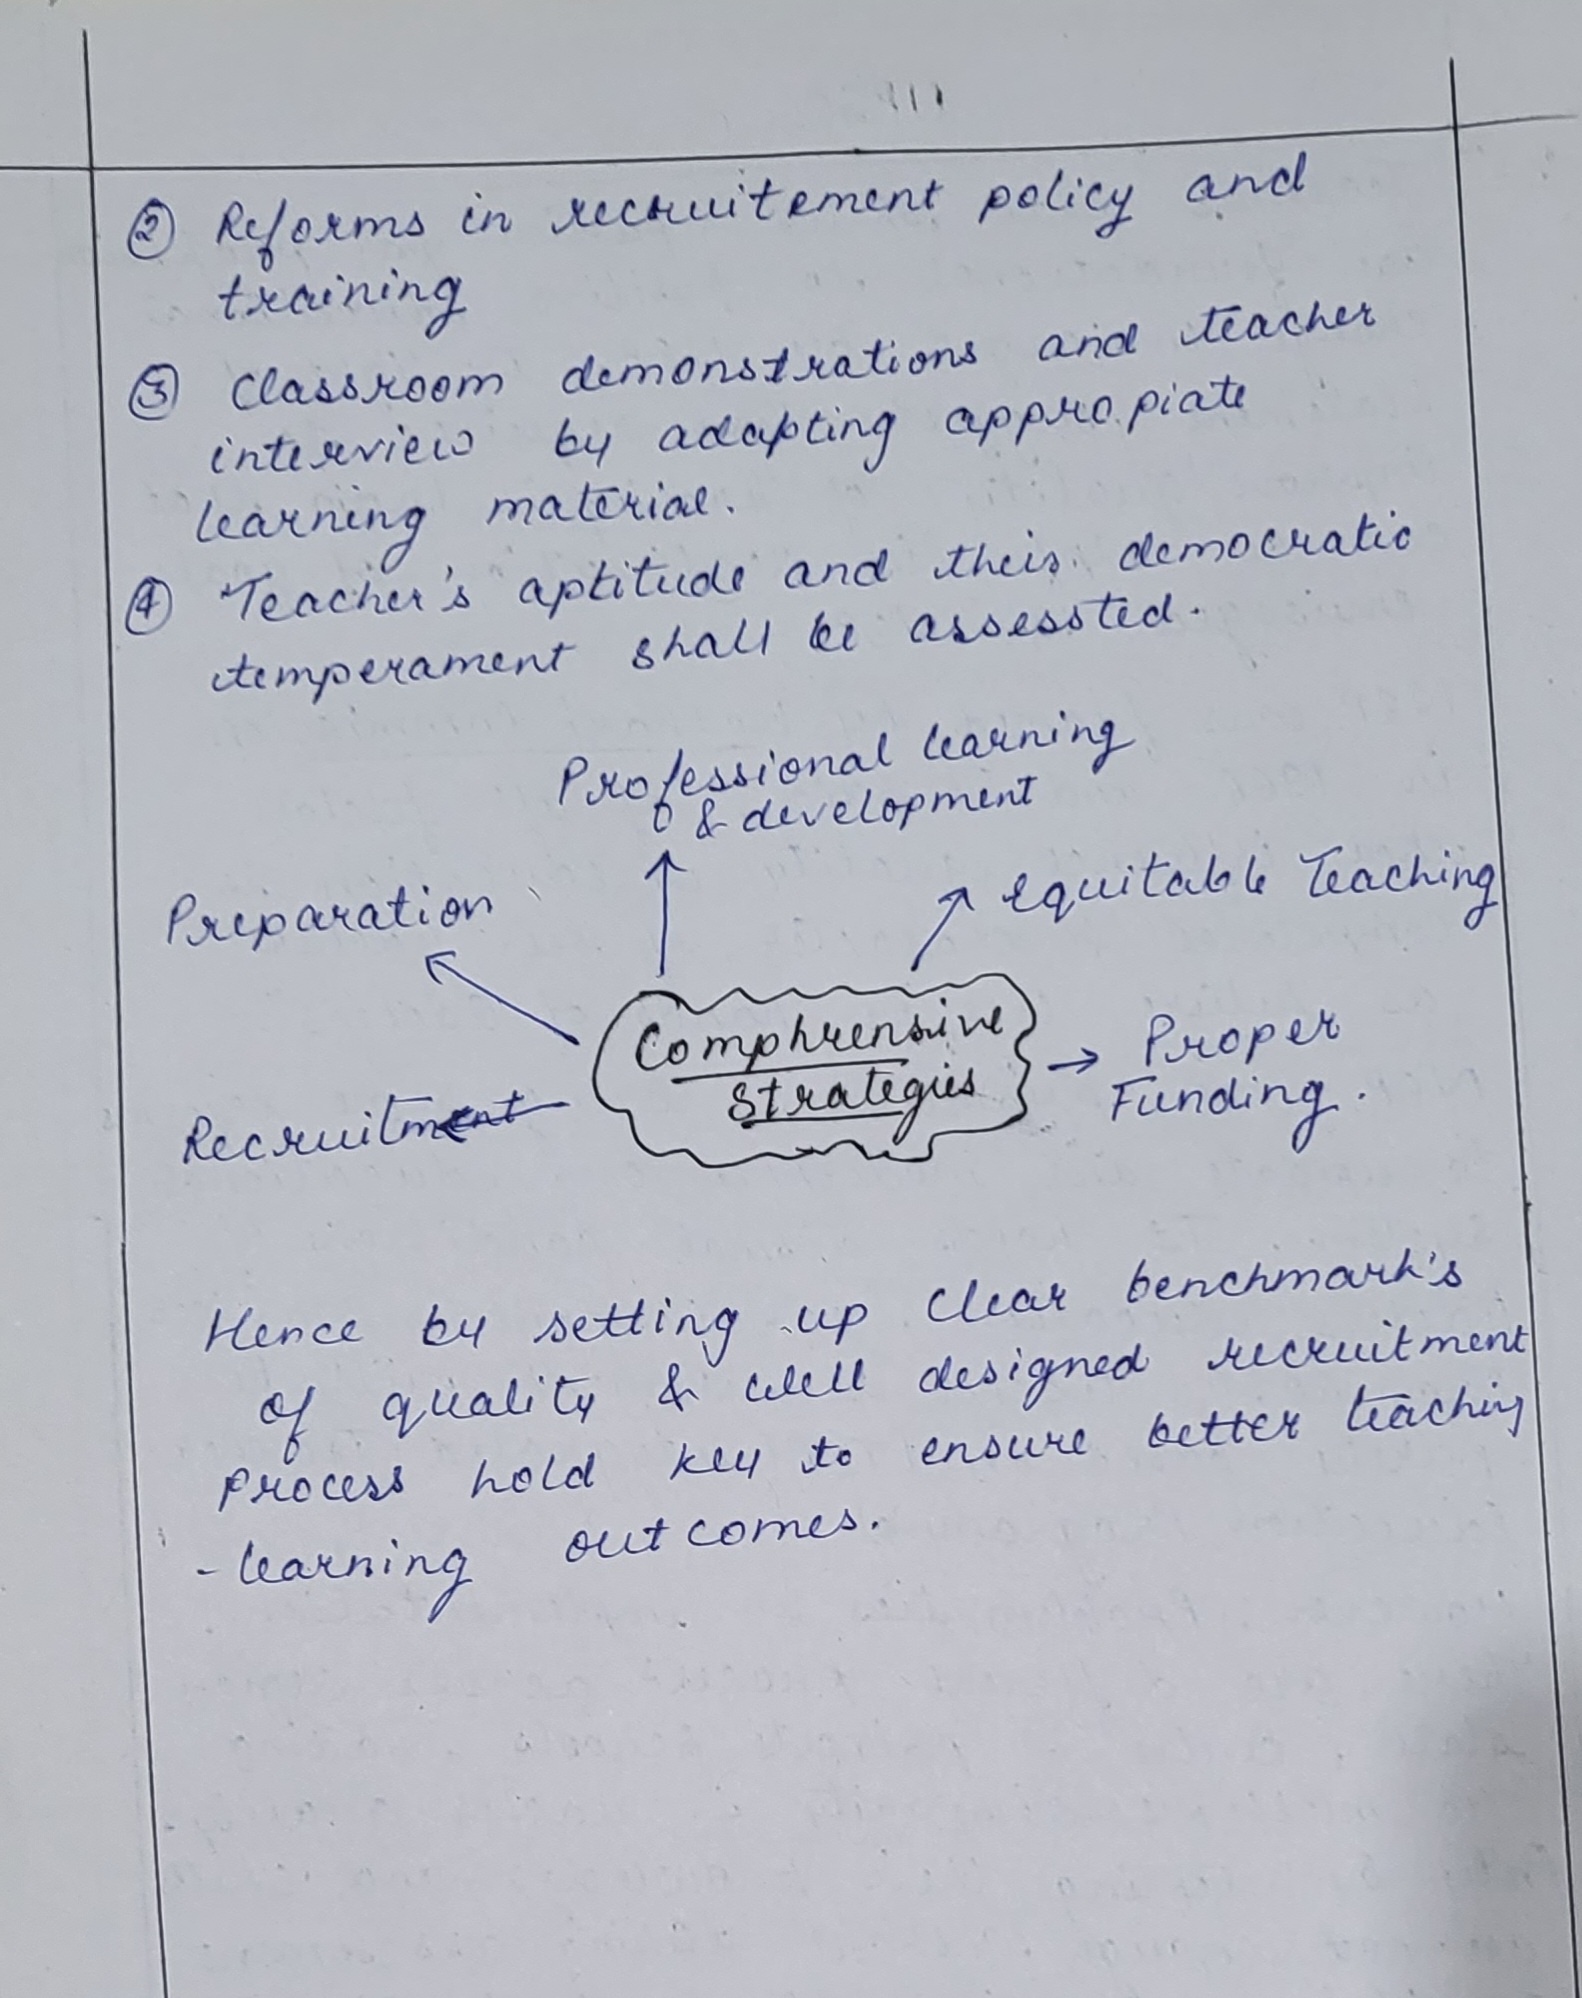 ② Reforms in recruitement policy and
training
③ Classroom demonstrations and teacher
interview by adapting appropiate
learning material.
④ Teacher's aptitude and their democratic
temperament shall be assessted.
Professional learning
& development
Preparation
equitable Teaching
Comphrensive
Strategies
Proper
Funding.
Recruitment
Hence by setting up clear benchmark's
of quality & well designed recruitment
process hold key to ensure better teaching
-learning outcomes.